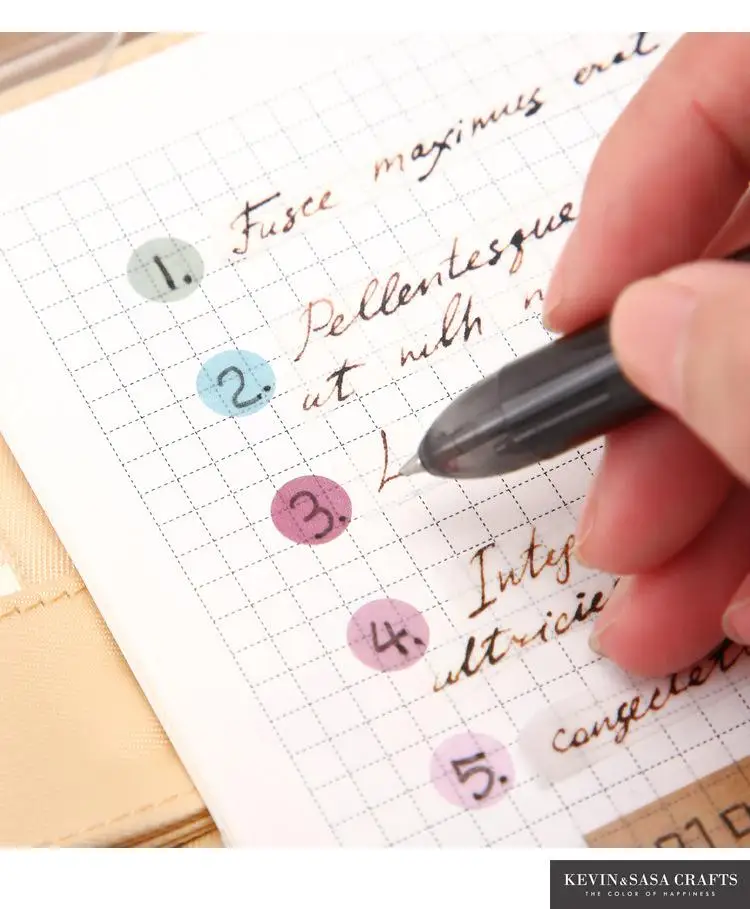 1. Fusce maximus erat
2. Pellentesque
ut nulh
3. L
4. Integ
ultricie
5. congectet
KEVIN&SASA CRAFTS
THE COLOR OF HAPPINESS